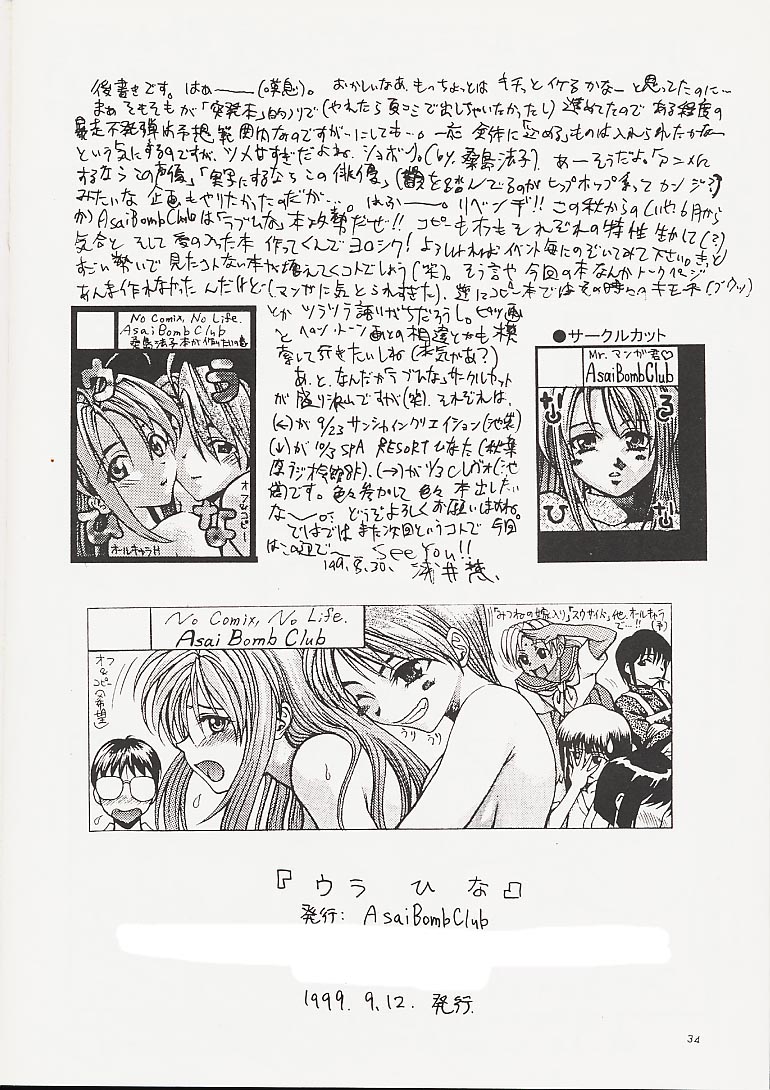 後書きです。はぁ――(嘆息)。おかしいなあ、もっちょっとは キチっとイケるかなーと思ってたのに…
まぁ そもそもが「突発本」的ノリで(やれたら夏コミで出しちゃいたかったし) 進めてたので ある程度の
暴走不発弾は予想範囲内なのですが…にしても…。一応 全体に「込める」ものは入れられたかなー
という気にするのですが、ツメ甘すぎだよね、ショボン。(by.桑島法子)。あーそうだよ。「アニメに
するなら この声優」「実写にするなら この俳優」(韻を踏んでるのが ヒップホップ系って カンジ?)
みたいな 企画もやりたかったのだが…。はふ――。リベンヂ!! この秋からの(いや 6月から
か) AsaiBombClubは「ラブひな」本攻勢だぜ!! コピーもオフも それぞれの特性 生かして(?)
気合と そして 愛の入った本 作ってくんで ヨロシク! よろしければ イベント毎に のぞいてみて 下さい。きっと
すごい勢いで 見たコトない本が増えてくコトでしょう(笑)。そう言や 今回の本なんか トークページ
あんま作れなかった んだけど…(マンガに気とられすぎた)。逆にコピー本では その時々の
とか ツラツラ語りがちだろうし。
と ペン・トーン画との相違とかも模
索して行きたいしね(本気かあ?)
あ、と、なんだか「ラブひな」サークルカット
が 盛り沢山ですが(笑) それぞれは、
(←)が 9/23 サンシャインクリエイション(池袋)
(↓)が 10/3 SPA RESORT ひなた(秋葉
原ラジオ会館8F)、(→)が
袋)です。色々参加して 色々 本出したい
な～っ。どうぞよろしくお願いしますね。
ではでは また次回というコトで 今回
はこの辺で～ See You!!
'99. 8. 30. 浅井
No Comix, No Life.
AsaiBombClub
桑島法子本が作りたい
らぶ
ひな
オフ&コピー
オールキャラH
●サークルカット
Mr. マンガ君♡
AsaiBombClub
なるひな
No Comix, No Life.
Asai Bomb Club
オフ&コピー(希望)
「みつねの嫁入り」「スウサイド」他、オールキャラ
で…!!(予)
うり うり
『ウラ ひな』
発行: AsaiBombClub
1999. 9. 12. 発行.
34